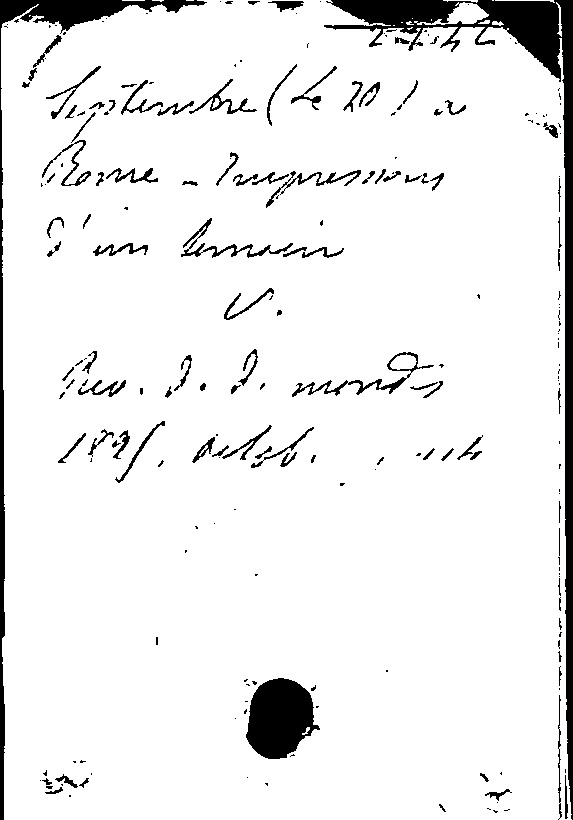 Septembre (Le 20) a
Rome - Impressions
d'un temoin
V.
Rev. d. d. mondes
1895. octob.